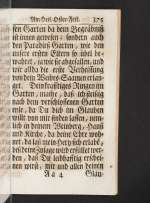 Am Heil. Oster-Fest. 375
sen Garten da dein Begräbniß
ist innen gewesen: sondern auch
den Paradiß Garten, wie den
unsere ersten Eltern so übel be-
wahret, ja wie sie abgefallen, und
wie allda die erste Verheissung
von dem Weibes-Saamen erlan-
get. Demkräfftiges Ringen im
Garten, mache, daß ich stätig
nach dem verschlossenen Garten
eile, da Du dich im Glauben
willt von mir finden lassen, nem-
lich in deinem Weinberg, Haus
und Kirche, da deine Ehre woh-
net, da laß mein Hertz sich erlabē,
biß deine Zusage wird erfüllet wer-
den, daß Du leibhafftig erschei-
nen wirst, mit und allen deinen
A a 4 Glau-